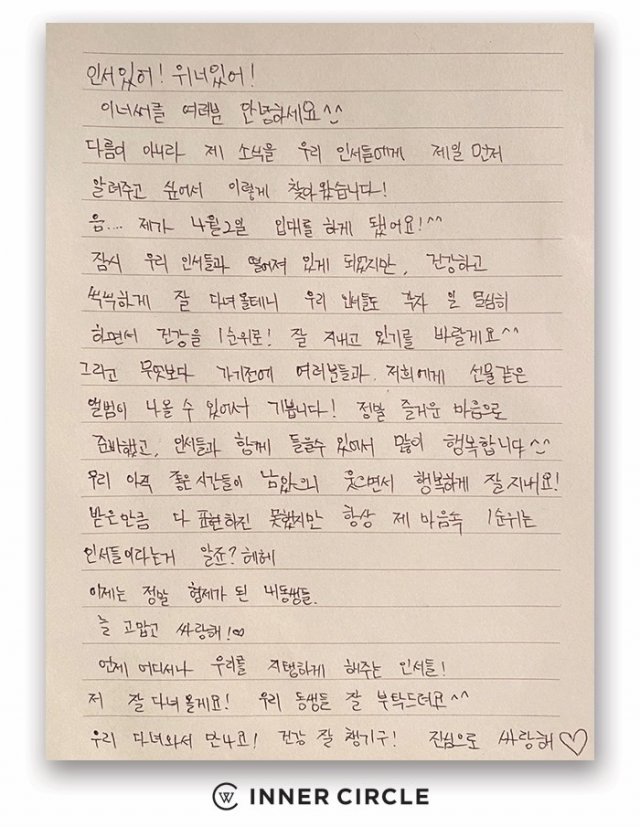 인서있어! 위너있어!
이너써클 여러분 안녕하세요^^
다름이 아니라 제 소식을 우리 인서들에게 제일 먼저
알려주고 싶어서 이렇게 찾아왔습니다!
음.... 제가 4월2일 입대를 하게 됐어요!^^
잠시 우리 인서들과 떨어져 있게 되었지만, 건강하고
씩씩하게 잘 다녀올테니 우리 인서들도 각자 일 열심히
하면서 건강을 1순위로! 잘 지내고 있기를 바랄게요^^
그리고 무엇보다 가기전에 여러분들과, 저희에게 선물같은
앨범이 나올 수 있어서 기쁩니다! 정말 즐거운 마음으로
준비했고, 인서들과 함께 들을수 있어서 많이 행복합니다^^
우리 아직 좋은시간들이 남았으니 웃으면서 행복하게 잘지내요!
받은만큼 다 표현하진 못했지만 항상 제 마음속 1순위는
인서들이라는거 알죠? 헤헤
이제는 정말 형제가 된 내동생들.
늘 고맙고 싸랑해!♡
언제 어디서나 우리를 지탱하게 해주는 인서들!
저 잘 다녀올게요! 우리 동생들 잘 부탁드려요^^
우리 다녀와서 만나요! 건강 잘 챙기구! 진심으로 싸랑해♡
INNER CIRCLE